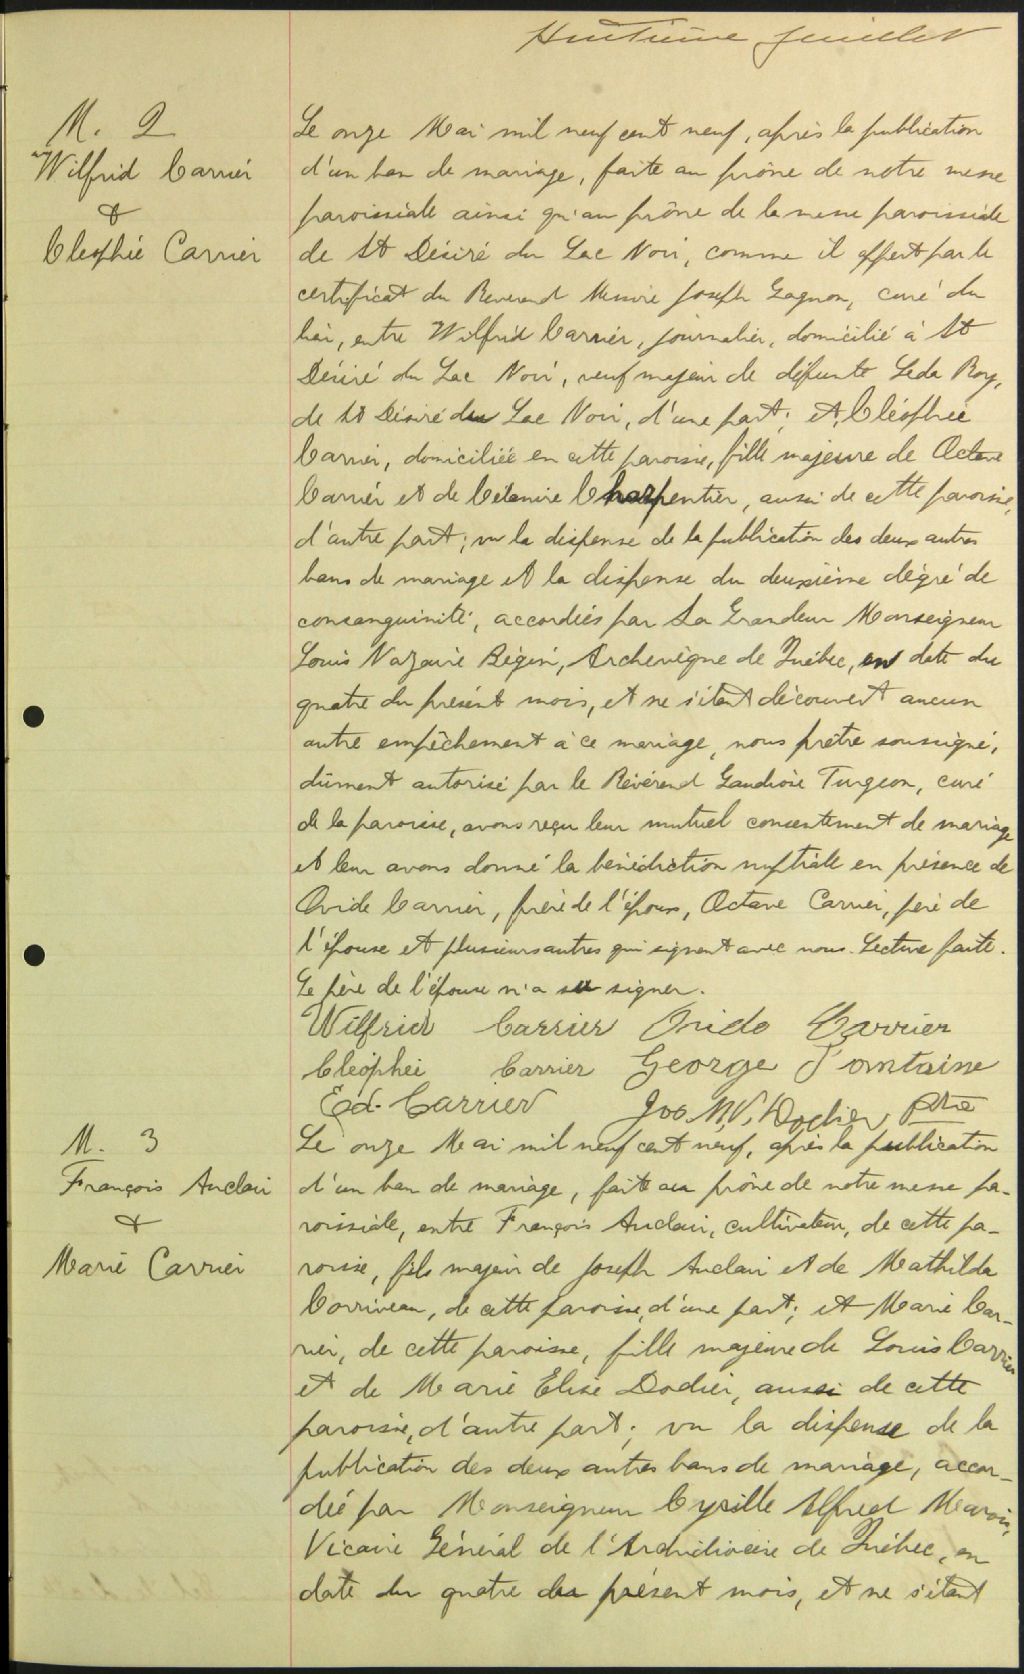 Huitième feuillet
M. 2
Wilfrid Carrier
&
Cléophée Carrier
Le onze Mai mil neuf cent neuf, après la publication
d'un ban de mariage, faite au prône de notre messe
paroissiale ainsi qu'au prône de la messe paroissiale
de St Désiré du Lac Noir, comme il appert par le
certificat du Reverend Messire Joseph Gagnon, curé du
lieu, entre Wilfrid Carrier, journalier, domicilié à St
Désiré du Lac Noir, veuf majeur de défunte Leda Roy,
de St Désiré du Lac Noir, d'une part; et, Cléophée
Carrier, domiciliée en cette paroisse, fille majeure de Octave
Carrier et de Célamire Charpentier, aussi de cette paroisse,
d'autre part; vu la dispense de la publication des deux autres
bans de mariage et la dispense du deuxième dégré de
consanguinité, accordées par Sa Grandeur Monseigneur
Louis Nazaire Bégin, Archevêque de Québec, en date du
quatre du présent mois, et ne s'étant découvert aucun
autre empêchement à ce mariage, nous prêtre soussigné,
dûment autorisé par le Révérend Gaudiose Turgeon, curé
de la paroisse, avons reçu leur mutuel consentement de mariage
et leur avons donné la bénédiction nuptiale en présence de
Ovide Carrier, frère de l'époux, Octave Carrier, père de
l'épouse et plusieurs autres qui signent avec nous. Lecture faite.
Le père de l'épouse n'a su signer.
Wilfrid Carrier Ovide Carrier
Cléophée Carrier George Fontaine
Ed. Carrier Jos. N. V. Dodier Ptre
M. 3
François Auclair
&
Marie Carrier
Le onze Mai mil neuf cent neuf, après la publication
d'un ban de mariage, faite au prône de notre messe pa-
roissiale, entre François Auclair, cultivateur, de cette pa-
roisse, fils majeur de Joseph Auclair et de Mathilda
Corriveau, de cette paroisse, d'une part; et Marie Car-
rier, de cette paroisse, fille majeure de Louis Carrier
et de Marie Elise Dodier, aussi de cette
paroisse, d'autre part; vu la dispense de la
publication des deux autres bans de mariage, accor-
dée par Monseigneur Cyrille Alfred Marois,
Vicaire Général de l'Archidiocèse de Québec, en
date du quatre du présent mois, et ne s'étant